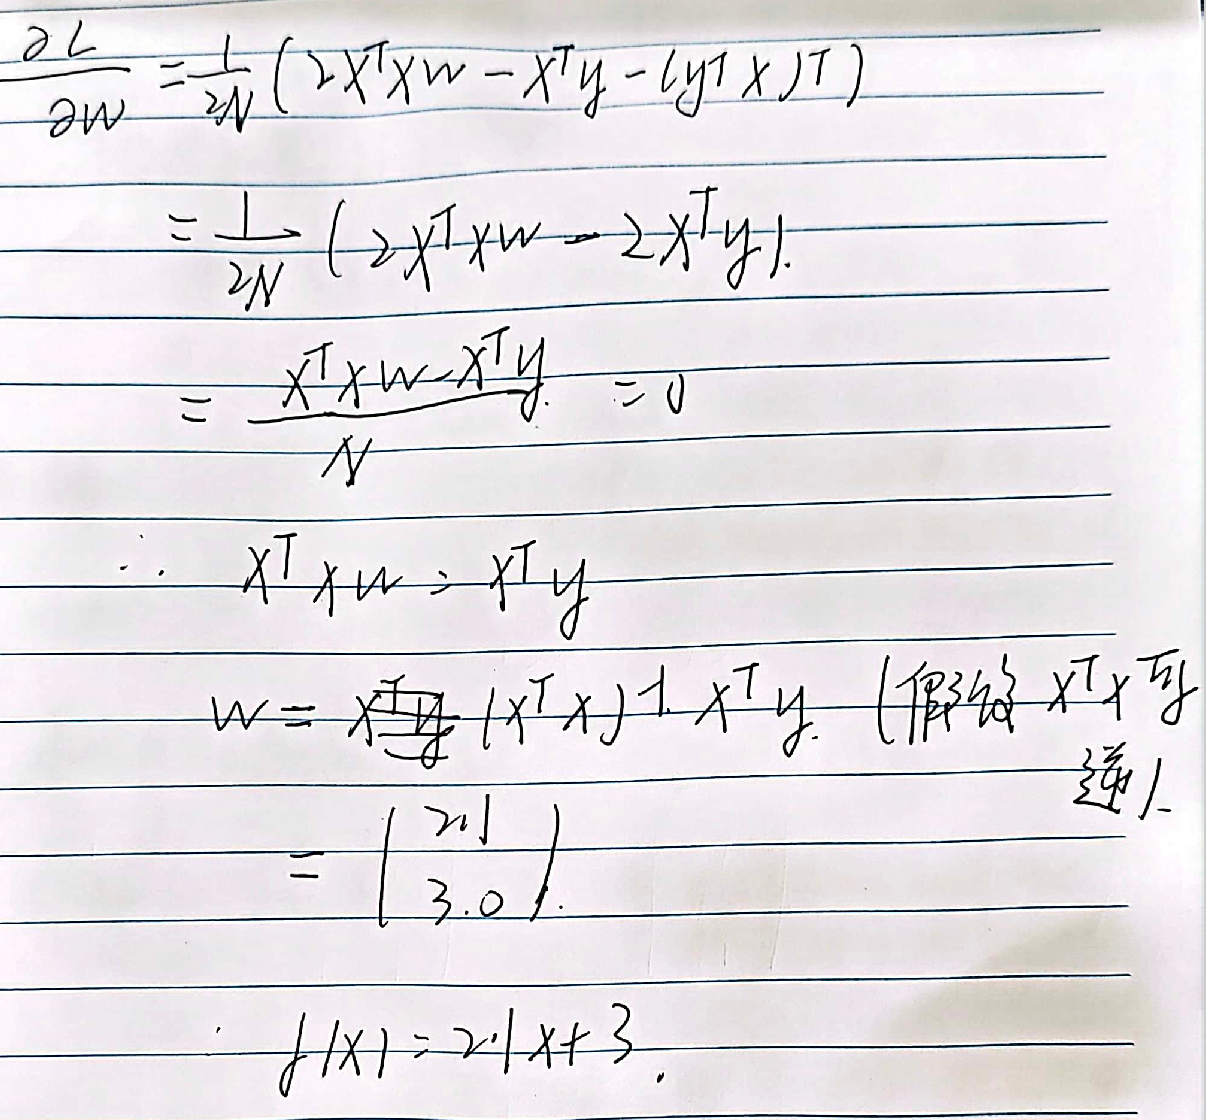 ∂L/∂w = 1/2N (2XᵀXw - Xᵀy - (yᵀX)ᵀ)
= 1/2N (2XᵀXw - 2Xᵀy).
= XᵀXw - Xᵀy / N = 0
∴ XᵀXw = Xᵀy
w = (XᵀX)⁻¹ Xᵀy. (假设 XᵀX可
逆).
= (2.1
3.0).
∴ f(x) = 2.1x+3.